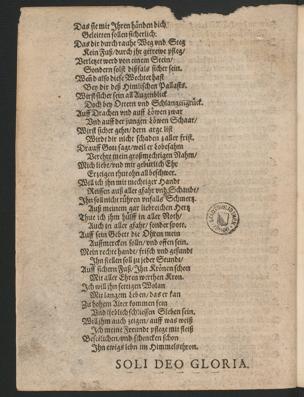 Das sie mit Ihren händen dich
Geleitten sollen sicherlich:
Das dir durch rauhe Weg vnd Steg
Kein Fuß/ durch ihr getrewe pfleg/
Verletzet werd von einem Stein/
Sondern solst dißfals sicher sein.
Wend also diese Wechter hast
Bey dir deß Himlischen Pallasts.
Wirst sicher sein all Augenblick
Doch bey Ottern vnd Schlangentück.
Auff Drachen vnd auff Löwen zwar
Vnd auff der jungen Löwen Schaar/
Wirst sicher gehn/ dern arge list
Wirdt dir nicht schaden zaller frist.
Drauff Gott sagt/ weil er lobesahm
Verehrt mein großmechtigen Nahm/
Mich liebt/ vnd mir gebürlich Ehr
Erzeigen thut ohn all beschwer.
Will ich ihn mit mechtiger Handt
Reissen auß aller gfahr vnd Schandt/
Ihn soll nicht rühren vnfals Schmertz
Auß meinem gar liebreichen Hertz
Thue ich ihm hülff in aller Noth/
Auch in aller gfahr/
Auff sein Gebett die Ohren mein
Auffmercken solln/ vnd offen sein.
Mein rechte handt/ frisch vnd gesundt
Ihn stellen soll zu jeder Stundt/
Auff sichern Fuß/ Ihn Krönen schon
Mit aller Ehren werthen Kron.
Ich will ihn setigen Wolan
Mit langem Leben/ das er kan
Zu hohem Alter kommen fein
Vnd lieblich schliessen
Will ihm auch zeigen/ auff was weiß
Ich meine Freundt pflege mit fleiß
Beseiligen/ vnd schencken schon
Ihn ewigs lebn im Himmelsthron.
SOLI DEO GLORIA.